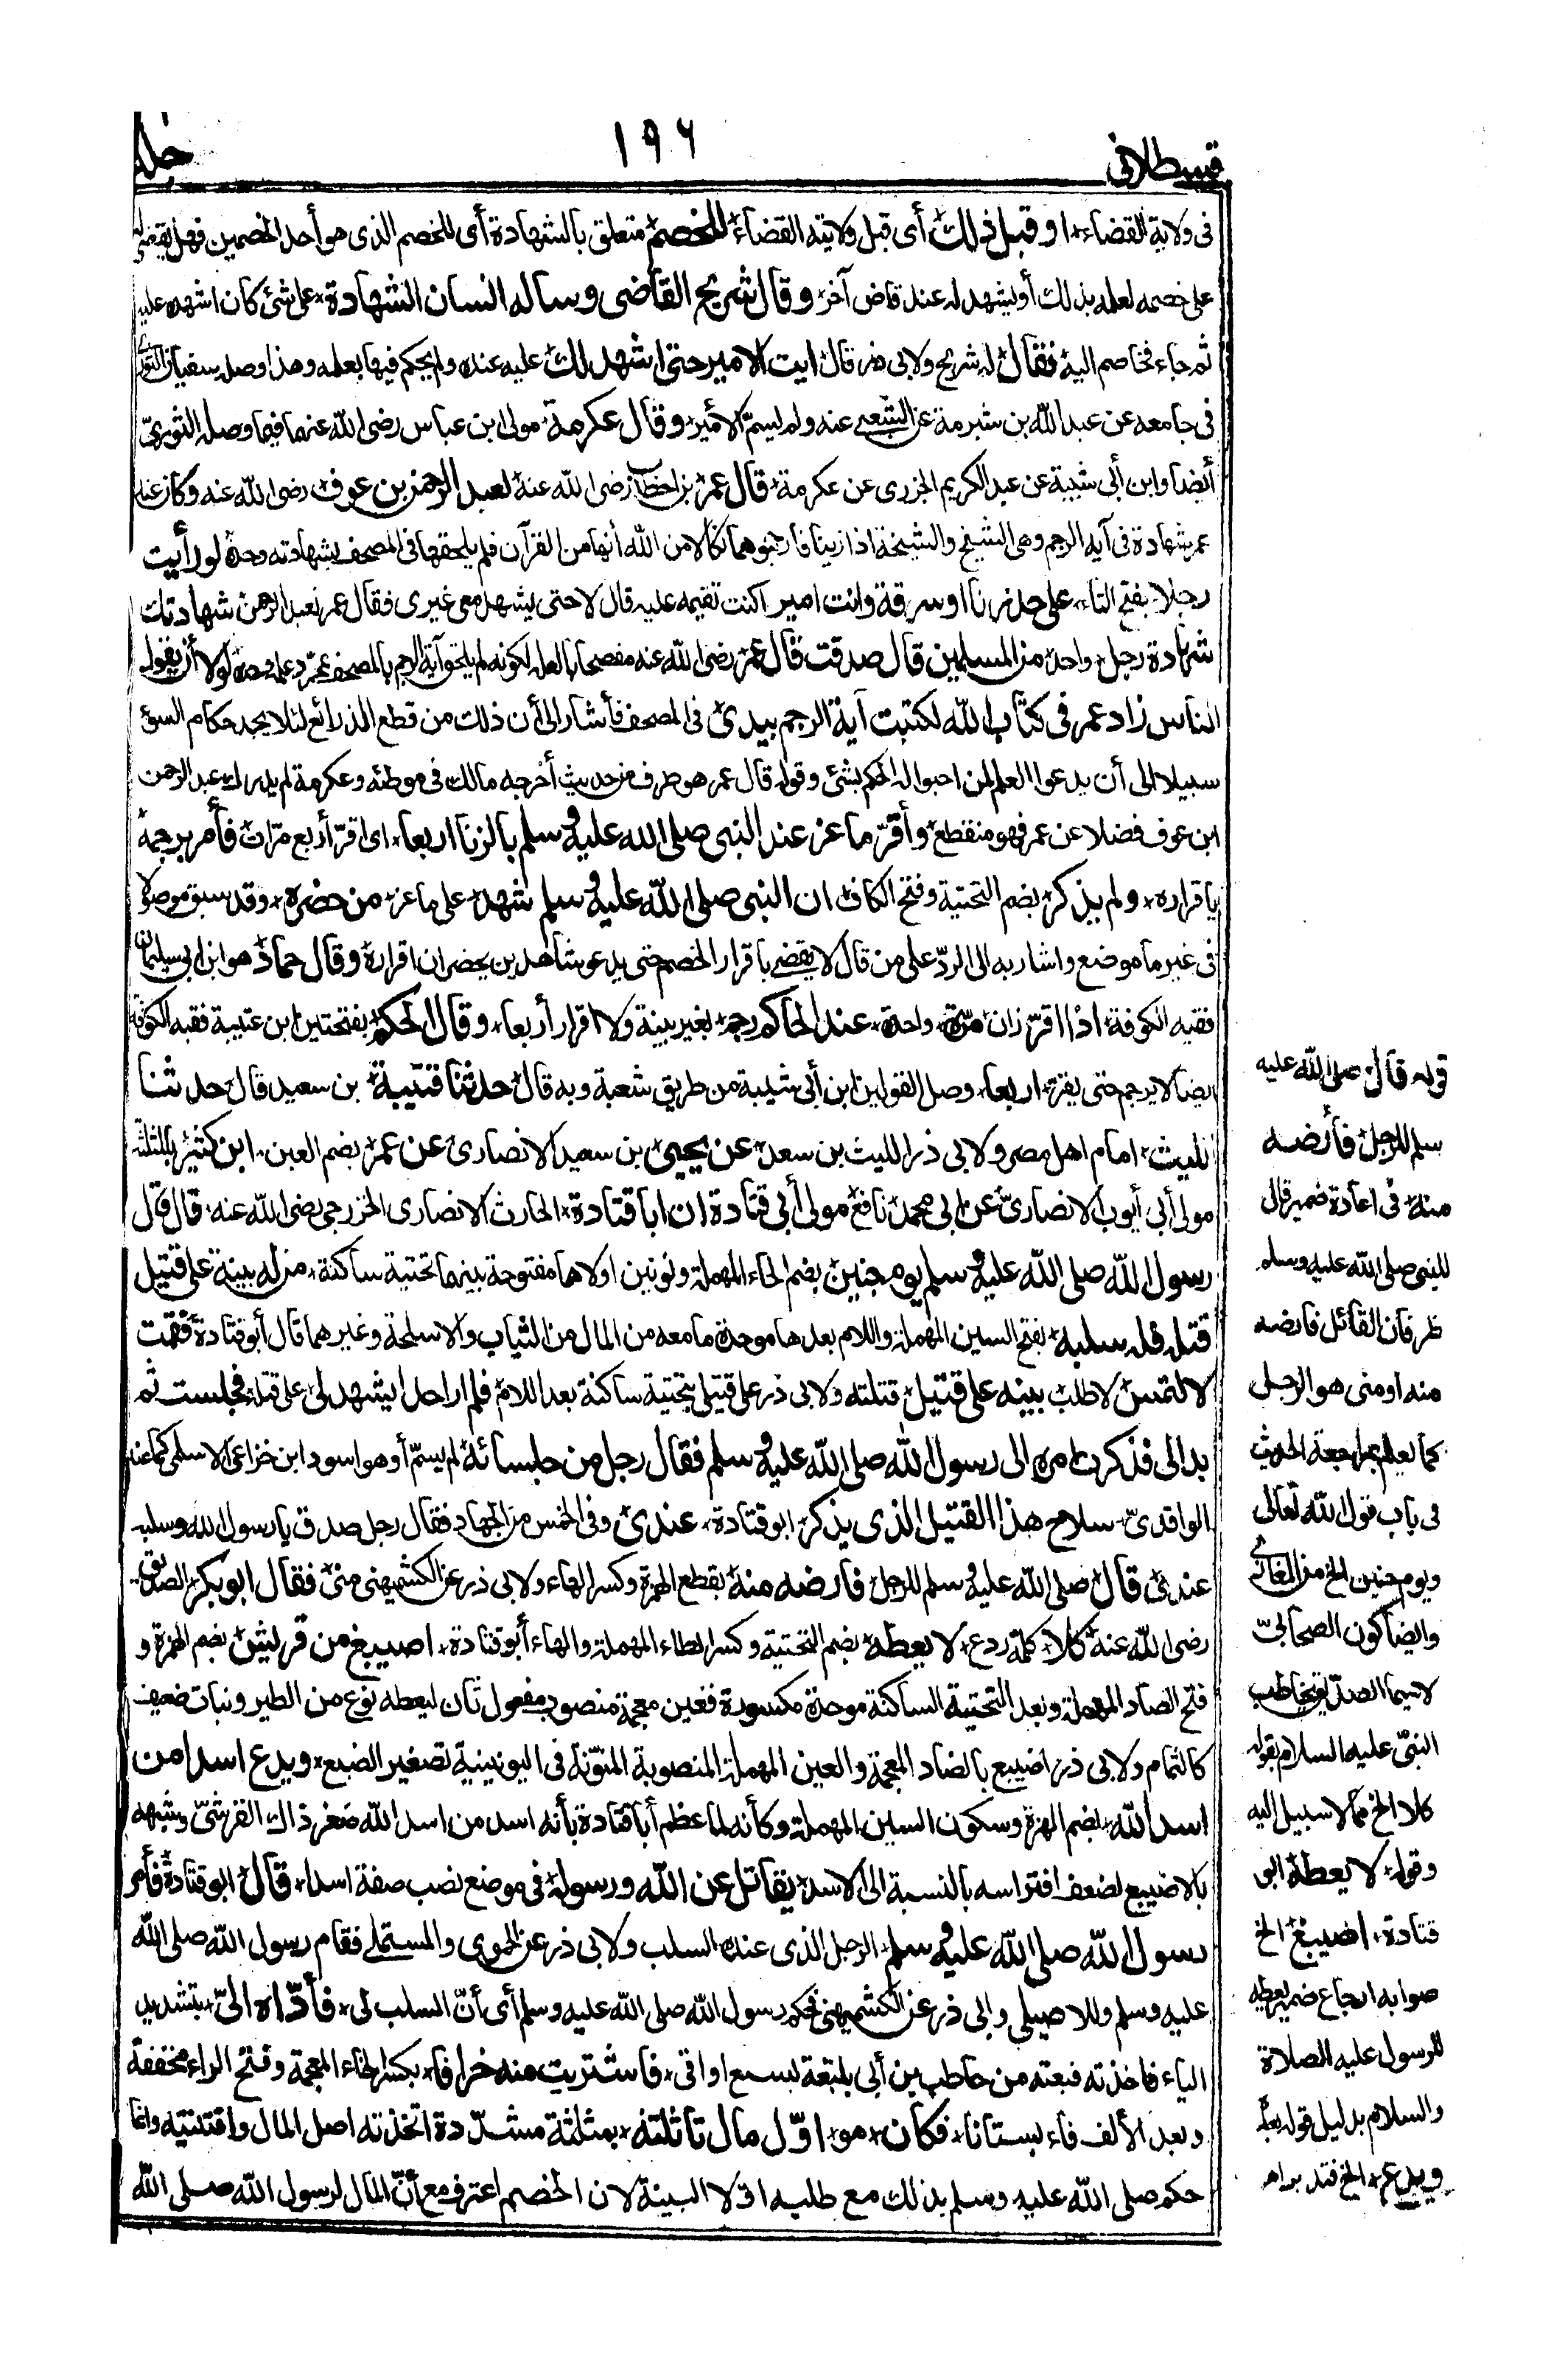 قسطلانی
١٩٦
جلد
فى ولاية القضاء او قبل ذلك أى قبل ولايته القضاء للخصم متعلق بالشهادة أى للخصم الذى هو أحد الخصمين فهل يقضى له
على خصمه لعلمه بذلك أو يشهد له عند قاض آخر وقال شريح القاضى وساله انسان الشهادة على شئ كان اشهده عليه
ثم جاء فخاصم اليه فقال له شريح ولابى ذر قال ايت الامير حتى اشهد لك عليه عنده ولم يحكم فيها بعلمه وهذا وصله سفيان الثورى
فى جامعه عن عبد الله بن شبرمة عن الشعبى عنه ولم يسم الأمير وقال عكرمة مولى ابن عباس رضى الله عنهما فيما وصله الثورىّ
أيضا وابن أبى شيبة عن عبد الكريم الجزرى عن عكرمة قال عمر بن الخطاب رضى الله عنه لعبد الرحمن بن عوف رضى الله عنه وكان عند
عمر شهادة فى آية الرجم وهى الشيخ والشيخة اذا زنيا فارجموهما نكالا من الله أنها من القرآن فلم يلحقها فى المصحف بشهادته وحده لو رأيت
رجلا بفتح التاء على حد زنا او سرقة وانت امير اكنت تقيمه عليه قال لا حتى يشهد معى غيرى فقال عمر لعبد الرحمن شهادتك
شهادة رجل واحد من المسلمين قال صدقت قال عمر رضى الله عنه مفصحا بالعلة لكونه لم يلحق آية الرجم بالمصحف بمجرد علمه وحده لولا أن يقول
الناس زاد عمر فى كتاب الله لكتبت آية الرجم بيدى فى المصحف فأشار الى أن ذلك من قطع الذرائع لئلا يجد حكام السوء
سبيلا الى أن يدعوا العلم لمن احبوا له الحكم بشئ وقوله قال عمر هو طرف من حديث أخرجه مالك فى موطئه وعكرمة لم يدرك عبد الرحمن
ابن عوف فضلا عن عمر فهو منقطع وأقرّ ماعز عند النبى صلى الله عليه وسلم بالزنا اربعا اى اقرّ أربع مرّات فأمر برجمه
باقراره ولم يذكر بضم التحتية وفتح الكاف ان النبى صلى الله عليه وسلم اشهد على ماعز من حضره وقد سبق موصولا
فى غير ما موضع واشار به الى الردّ على من قال لا يقضى باقرار الخصم حتى يدعو شاهدين يحضران اقراره وقال حماد هو ابن ابى سليمان
فقيه الكوفة اذا اقرّ زان مرّة واحدة عند الحاكم رجم بغير بينة ولا اقرار أربعا وقال الحكم بفتحتين ابن عتيبة فقيه الكوفة
ايضا لا يرجم حتى يقرّ اربعا وصل القولين ابن أبى شيبة من طريق شعبة وبه قال حدثنا قتيبة بن سعيد قال حدثنا
الليث امام اهل مصر ولابى ذر الليث بن سعد عن يحيى بن سعيد الانصارى عن عمر بضم العين ابن كثير بالمثلثة
مولى أبى أيوب الانصارىّ عن ابى محمد نافع مولى أبى قتادة ان ابا قتادة الحارث الانصارى الخزرجى رضى الله عنه قال قال
رسول الله صلى الله عليه وسلم يوم حنين بضم الحاء المهملة ونونين اولاهما مفتوحة بينهما تحتية ساكنة من له بينة على قتيل
قتله فله سلبه بفتح السين المهملة واللام بعدها موحدة ما معه من المال من الثياب والاسلحة وغيرهما قال أبو قتادة فقمت
لالتمس لاطلب بينة على قتيل قتلته ولابى ذر على قتيلى بتحتية ساكنة بعد اللام فلم ار احدا يشهد لى على قتله فجلست ثم
بدا لى فذكرت امره الى رسول الله صلى الله عليه وسلم فقال رجل من جلسائه لم يسمّ أو هو اسود ابن خزاعى الاسلمى كما عند
الواقدىّ سلاح هذا القتيل الذى يذكر ابو قتادة عندى وفى الخمس من الجهاد فقال رجل صدق يا رسول الله وسلبه
عندى قال صلى الله عليه وسلم للرجل فارضه منه بقطع الهمزة وكسر الهاء ولابى ذر عن الكشميهنى منى فقال ابو بكر الصديق
رضى الله عنه كلا كلمة ردع لا يعطه بضم التحتية وكسر الطاء المهملة والهاء أبو قتادة اصيبغ من قريش بضم الهمزة و
فتح الصاد المهملة وبعد التحتية الساكنة موحدة مكسورة فغين معجمة منصوب مفعول ثان ليعطه نوع من الطير ونبات ضعيف
كالثمام ولابى ذر اضيبع بالضاد المعجمة والعين المهملة المنصوبة المنوّنة فى اليونينية تصغير الضبع ويدع اسدا من
اسد الله بضم الهمزة وسكون السين المهملة وكأنه لما عظم أبا قتادة بأنه اسد من اسد الله صغر ذاك القرشىّ وشبهه
بالاضيبع لضعف افتراسه بالنسبة الى الاسد يقاتل عن الله ورسوله فى موضع نصب صفة اسدا قال ابو قتادة فأمر
رسول الله صلى الله عليه وسلم الرجل الذى عنده السلب ولابى ذر عن الحموى والمستملى فقام رسول الله صلى الله
عليه وسلم وللاصيلى وابى ذر عن الكشميهنى فحكم رسول الله صلى الله عليه وسلم أى أنّ السلب لى فأدّاه الىّ بتشديد
الياء فاخذته فبعته من حاطب بن أبى بلتعة بسبع اواقى فاشتريت منه خرافا بكسر الخاء المعجمة وفتح الراء مخففة
وبعد الألف فاء بستانا فكان هو اوّل مال تأثلته بمثلثة مشدّدة اتخذته اصل المال واقتنيته وانما
حكم صلى الله عليه وسلم بذلك مع طلبه اوّلا البينة لان الخصم اعترف مع أنّ المال لرسول الله صلى الله
قوله قال صلى الله عليه
سلم للرجل فأرضه
منه فى اعادة ضمير قال
للنبى صلى الله عليه وسلم
نظر فان القائل فارضه
منه او منى هو الرجل
كما يعلم بمراجعة الحديث
فى باب قول الله تعالى
ويوم حنين الخ من المغازى
وايضا كون الصحابىّ
لاسيما الصدّيق يخاطب
النبىّ عليه السلام بقوله
كلا الخ مما لا سبيل اليه
وقوله لا يعطه ابو
قتادة اضيبغ الخ
صوابه ارجاع ضمير يعطه
للرسول عليه الصلاة
والسلام بدليل قوله بعد
ويدع الخ فتد بر اهـ